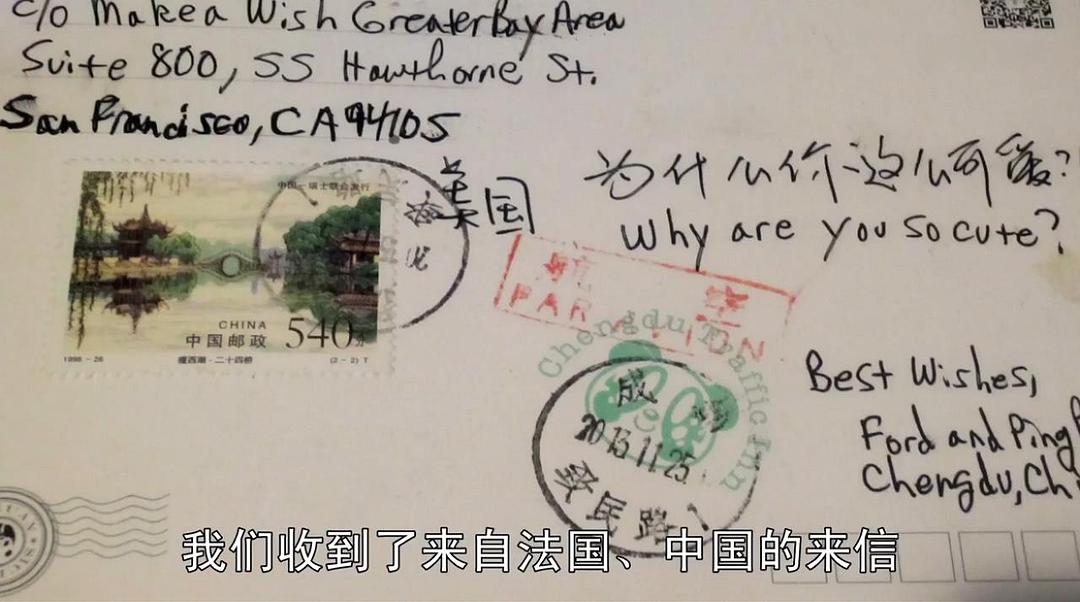 c/o Make a Wish Greater Bay Area
Suite 800, 55 Hawthorne St.
San Francisco, CA 94105
美国
为什么你这么可爱?
Why are you so cute?
中国—瑞士联合发行
CHINA
中国邮政 540分
1998-26 瘦西湖·二十四桥 (2-2) T
航空
PAR AVION
Chengdu Traffic Inn
成都
2013.11.25
民路
Best Wishes,
Ford and Ping
Chengdu, Ch
我们收到了来自法国、中国的来信